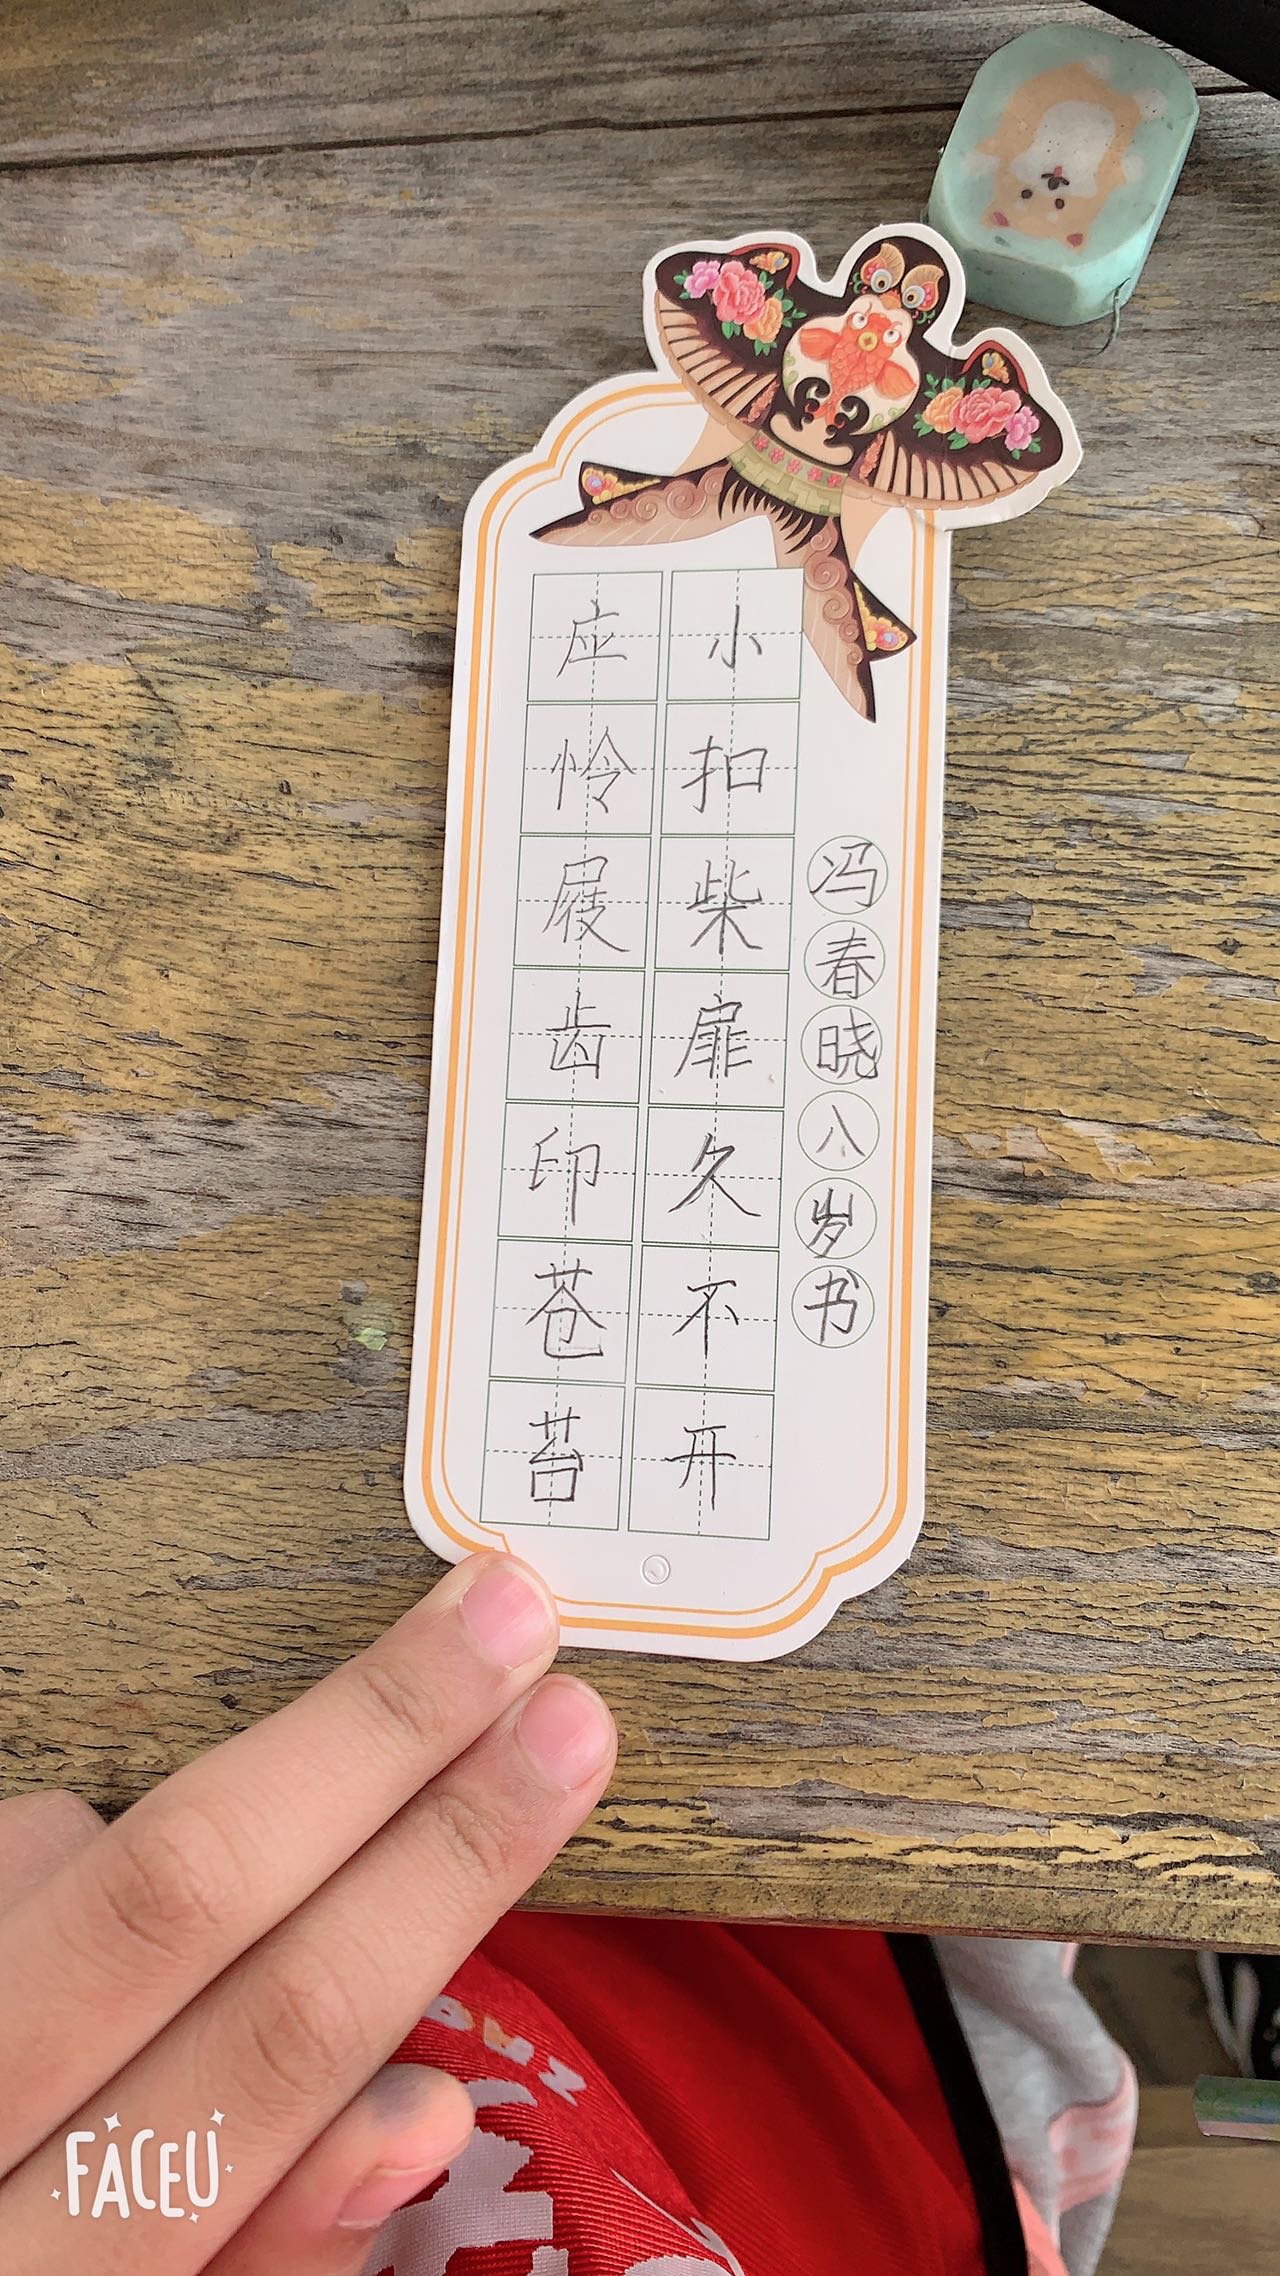 应怜屐齿印苍苔
小扣柴扉久不开
冯春晓八岁书
FACEU